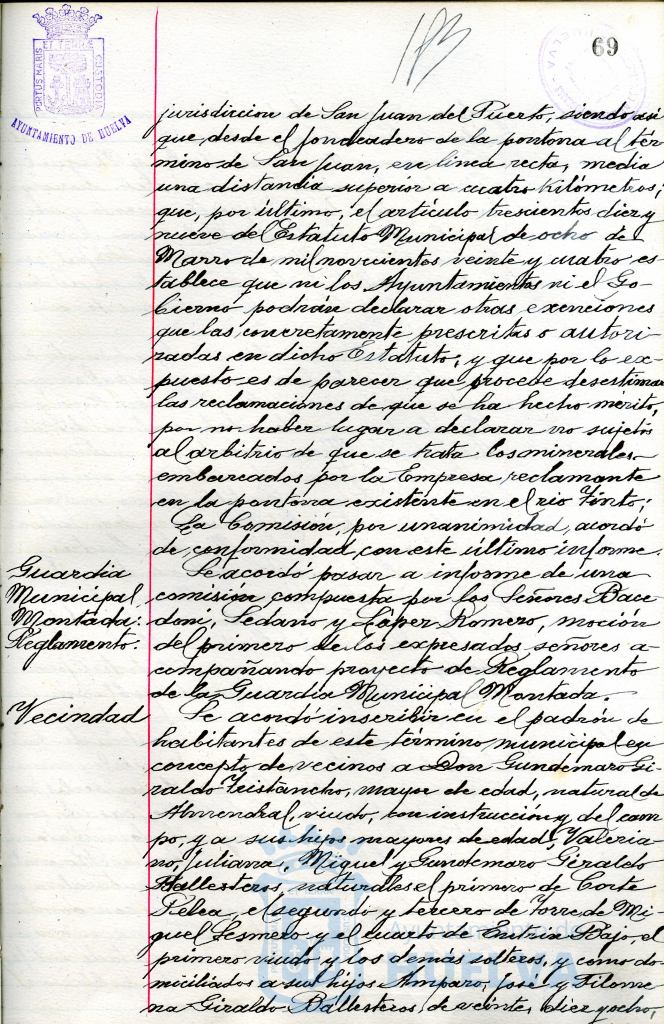 183
69
PORTUS MARIS ET TERRE CUSTODIA
AYUNTAMIENTO DE HUELVA
HUELVA
jurisdiccion de San Juan del Puerto, siendo asi
que, desde el fondeadero de la pontona al tér-
mino de San Juan, en línea recta, media
una distancia superior a cuatro kilómetros;
que, por último, el artículo trescientos diez y
nueve del Estatuto Municipal de ocho de
Marzo de mil novecientos veinte y cuatro es-
tablece que ni los Ayuntamientos ni el Go-
bierno podrán declarar otras exenciones
que las concretamente prescritas o autori-
zadas en dicho Estatuto; y que por lo ex-
puesto es de parecer que procede desestimar
las reclamaciones de que se ha hecho mérito,
por no haber lugar a declarar no sujetos
al arbitrio de que se trata los minerales
embarcados por la Empresa reclamante
en la pontona existente en el rio Tinto;
La Comisión, por unanimidad, acordó
de conformidad con este último informe.
Guardia
Municipal
Montada:
Reglamento.
Se acordó pasar a informe de una
comisión compuesta por los Señores Bace-
doni, Sedano y López Romero, moción
del primero de los expresados señores a-
compañando proyecto de Reglamento
de la Guardia Municipal Montada.
Vecindad
Se acordó inscribir en el padrón de
habitantes de este término municipal en
concepto de vecinos a Don Gundemaro Gi-
raldo Tristancho, mayor de edad, natural de
Almendral, viudo, con instrucción y del cam-
po, y a sus hijos mayores de edad, Valeria-
no, Juliana, Miguel y Gundemaro Giraldo
Ballesteros, naturales el primero de Corte
Pelea, el segundo y tercero de Torre de Mi-
guel Sesmero y el cuarto de Entrin Bajo, el
primero viudo y los demás solteros, y como do-
miciliados a sus hijos Amparo, José y Filome-
na Giraldo Ballesteros, de veinte, diez y ocho,
Ayuntamiento de
HUELVA